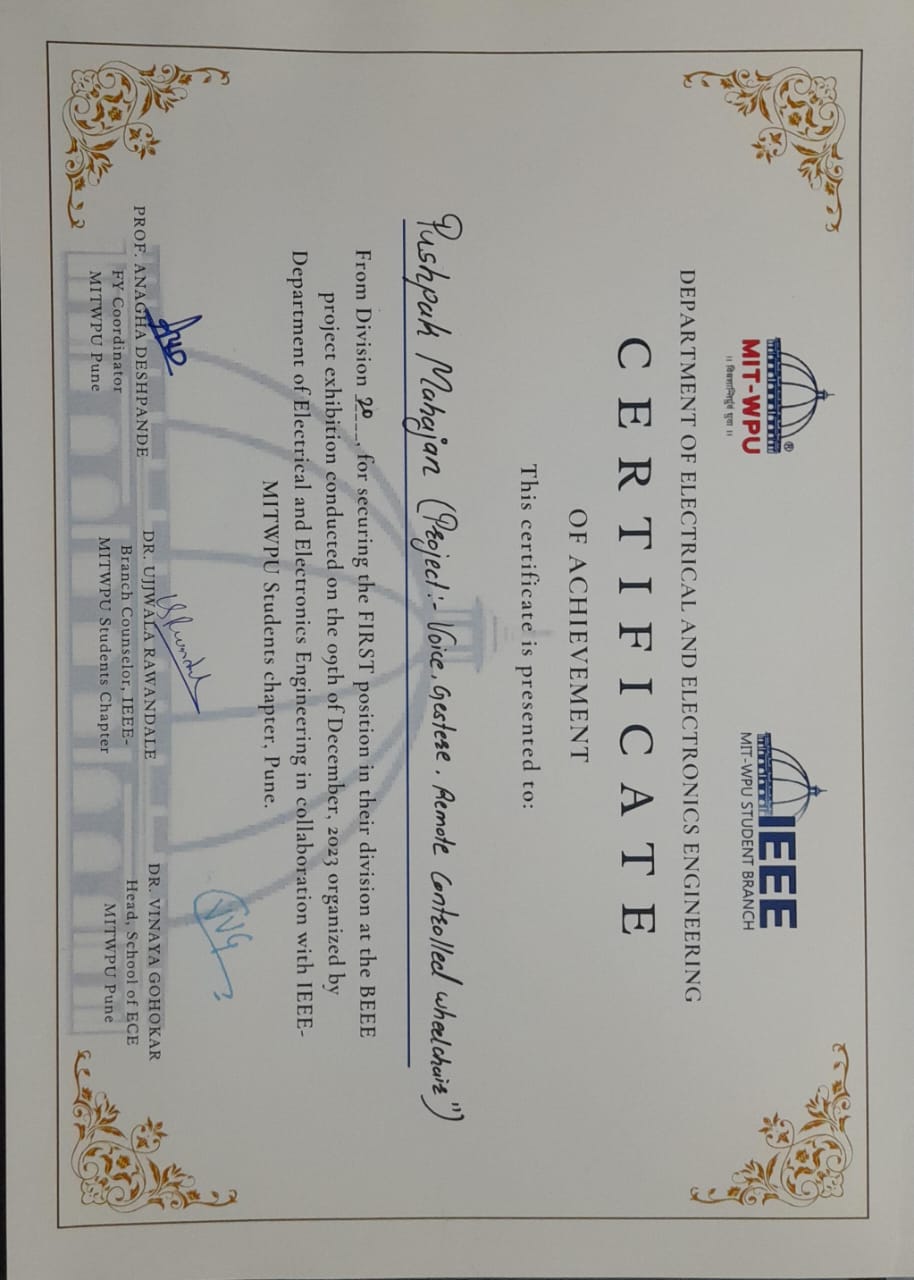 ®
MIT-WPU
IEEE
MIT-WPU STUDENT BRANCH
DEPARTMENT OF ELECTRICAL AND ELECTRONICS ENGINEERING
CERTIFICATE
OF ACHIEVEMENT
This certificate is presented to:
Pushpak Mahajan (Project:- Voice, Gestere, Remote Controlled wheelchair")
From Division 20, for securing the FIRST position in their division at the BEEE
project exhibition conducted on the 09th of December, 2023 organized by
Department of Electrical and Electronics Engineering in collaboration with IEEE-
MITWPU Students chapter, Pune.
VVG
PROF. ANAGHA DESHPANDE
FY Coordinator
MITWPU Pune
DR. UJJWALA RAWANDALE
Branch Counselor, IEEE-
MITWPU Students Chapter
DR. VINAYA GOHOKAR
Head, School of ECE
MITWPU Pune